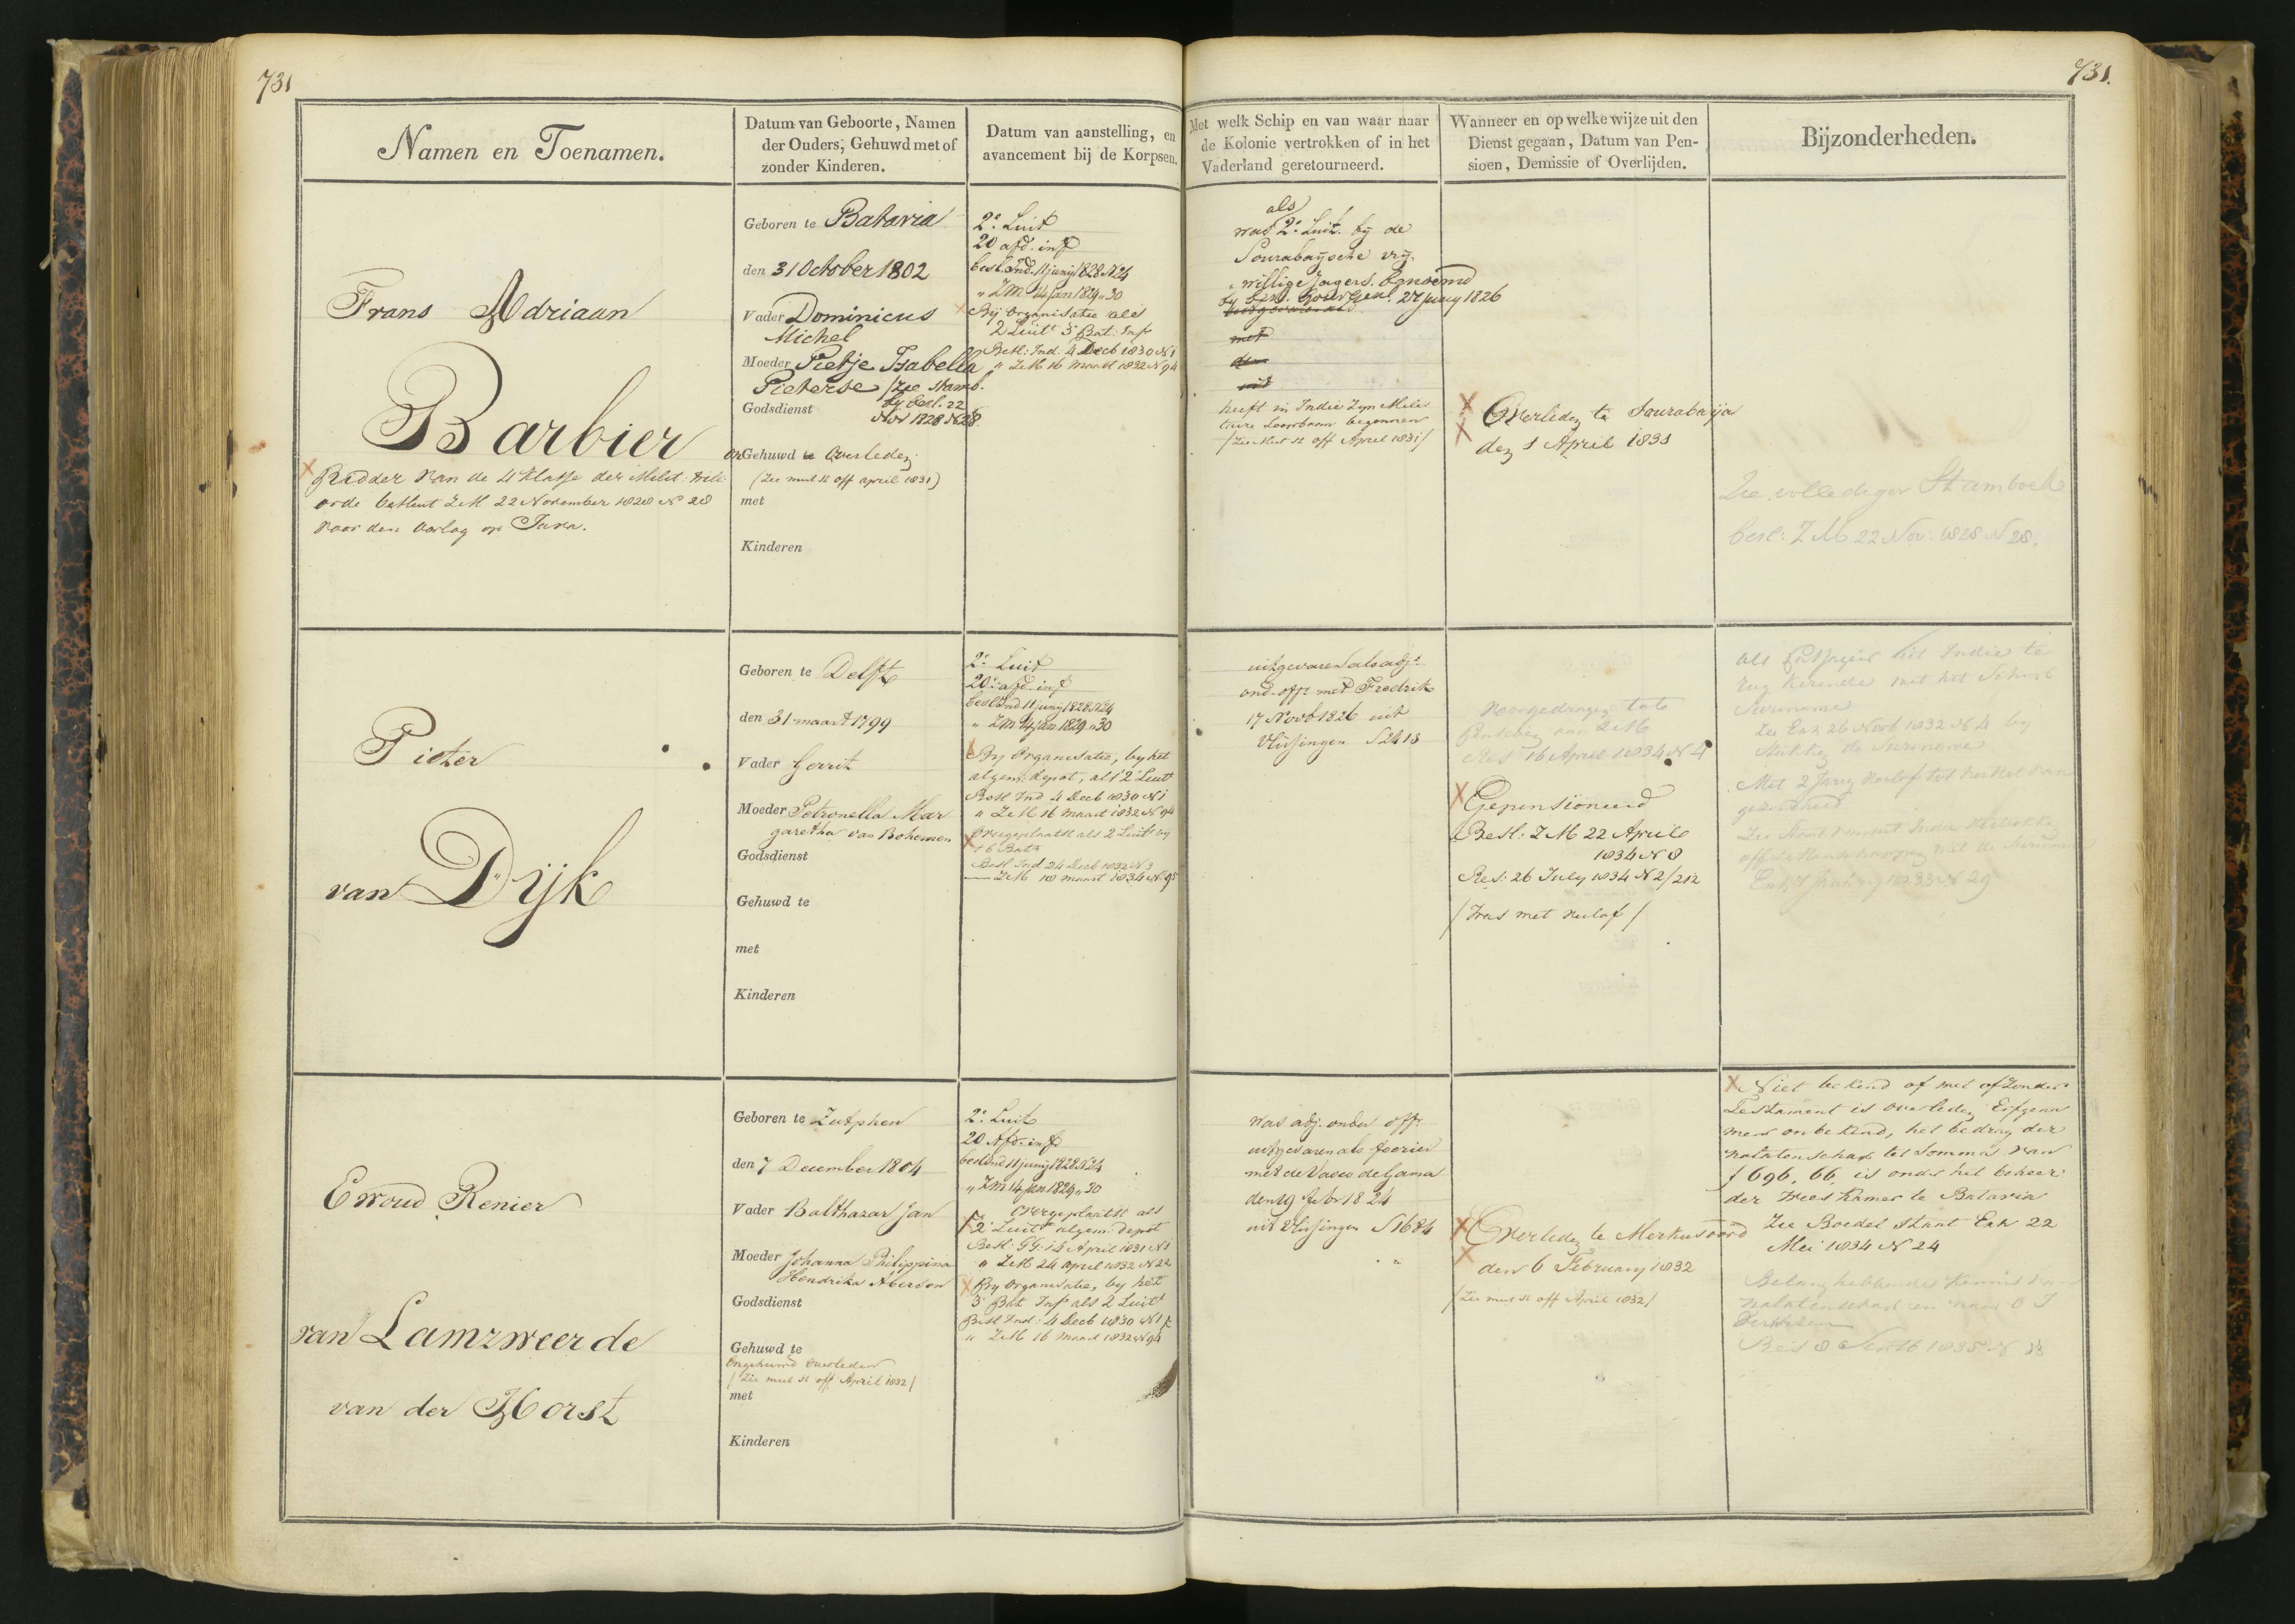 731
731.
Namen en Toenamen.
Datum van Geboorte, Namen
der Ouders, Gehuwd met of
zonder Kinderen.
Datum van aanstelling, en
avancement bij de Korpsen.
Met welk Schip en van waar naar
de Kolonie vertrokken of in het
Vaderland geretourneerd.
Wanneer en op welke wijze uit den
Dienst gegaan, Datum van Pen-
sioen, Demissie of Overlijden.
Bijzonderheden.
Frans Adriaan
Barbier
Ridder van de 4 Klasse der Milit: Will:
orde besluit ZM 22 November 1828 N 28
voor den Oorlog op Java.
Geboren te Batavia
den 31 October 1802
Vader Dominicus
Michel
Moeder Pietje Isabella
Pieterse / Zie stamb.
by besl. 22
Nov 1828 N 28.
Godsdienst
on Gehuwd te Overleden
(Zie mut st off april 1831)
met
Kinderen
2e Luit
20 afd. inf
besl. Ind. 11 junij 1828 N 24
" ZM 14 Jan 1829 " 30
Bij Organisatie als
2 Luit 3 Bat: Inf
Besl: Ind. 4 Decb 1830 N 1
" ZM 16 Maart 1832 N 94
als
was 2e Luit. bij de
Sourabaijsche vrij-
willige Jagers. benoemd
by besl. Gouv Genl. 27 junij 1826
met
den
uit
heeft in Indie zyn Mili
taire Loopbaan begonnen
/ Zie Mut st off April 1831 /
Overleden te Sourabaija
den 1 April 1831
Zie vollediger Stamboek
besl: Z M 22 Nov: 1828 N 28.
Pieter
van Dijk
Geboren te Delft
den 31 maart 1799
Vader Gerrit
Moeder Petronella Mar
garetha van Bohemen
Godsdienst
Gehuwd te
met
Kinderen
2e Luit
20e afd. inf
besl Ind 11 junij 1828 N 24
" ZM 14 jan 1829 " 30
By Organisatie, by het
algem: depot, als 2 Luit
Besl Ind 4 Decb 1830 N 1
" ZM 16 Maart 1832 N 94
Overgeplaatst als 2 Luit by
16 Bat
Besl Ind 24 Decb 1832 N 3
— ZM 18 maart 1834 N 95
uitgevaren als adjt
ond-offr met Fredrik
17 Novb 1826 uit
Vlissingen S 2413
Voorgedragen tot
pensioen aan ZM
Res 16 April 1834 N 4
Gepensioneerd
Besl: ZM 22 April
1834 N 8
Res: 26 July 1834 N 2/212
/ Was met verlof /
Als Passagier uit Indie te
rug keerende met het Schip
Suriname
Zie Exh 26 Novb 1832 N 4 by
Stukken de Suriname
Met 2 Jarig Verlof tot herstel van
gezondheid
N 29
Ewoud Renier
van Lamzweerde
van der Horst
Geboren te Zutphen
den 7 December 1804
Vader Balthazar Jan
Moeder Johanna Philippina
Hendrika Aberson
Godsdienst
Gehuwd te
Ongehuwd Overleden
/ Zie mut st off April 1832 /
met
Kinderen
2e Luit
20 Afd. inf
besl Ind 11 junij 1828 N 24
" ZM 14 jan 1829 " 30
Overgeplaatst als
2 Luit algem: depot
Besl: GG: 15 April 1831 N 1
" ZM 24 April 1832 N 22
By Organisatie, by het
3 Bat Inf als 2 Luit
Besl Ind: 4 Decb 1830 N 1
" ZM 16 Maart 1832 N 94
was adj. onder offr
uitgevaren als foerier
met de Vasco de Gama
den 19 Febr 1824
uit Vlissingen S 1684
Overleden te Merkusoord
den 6 February 1832
/ Zie mut st off April 1832 /
Niet bekend of met of zonder
Testament is overleden, Erfgena
men onbekend, het bedrag der
nalatenschap ter Somma van
f 696,66, is onder het beheer
der Weeskamer te Batavia
Zie Boedel Staat Exh 22
Mei 1834 N 24
Belanghebbende Kennis van
nalatenschap en naar O I